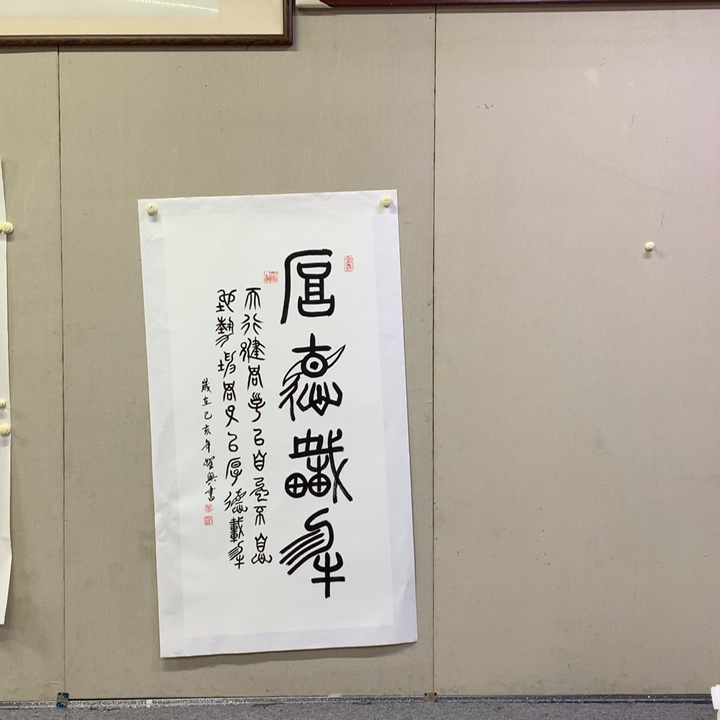 厚德載物
天行健君子以自強不息
地勢坤君子以厚德載物
歲在己亥年耀興書